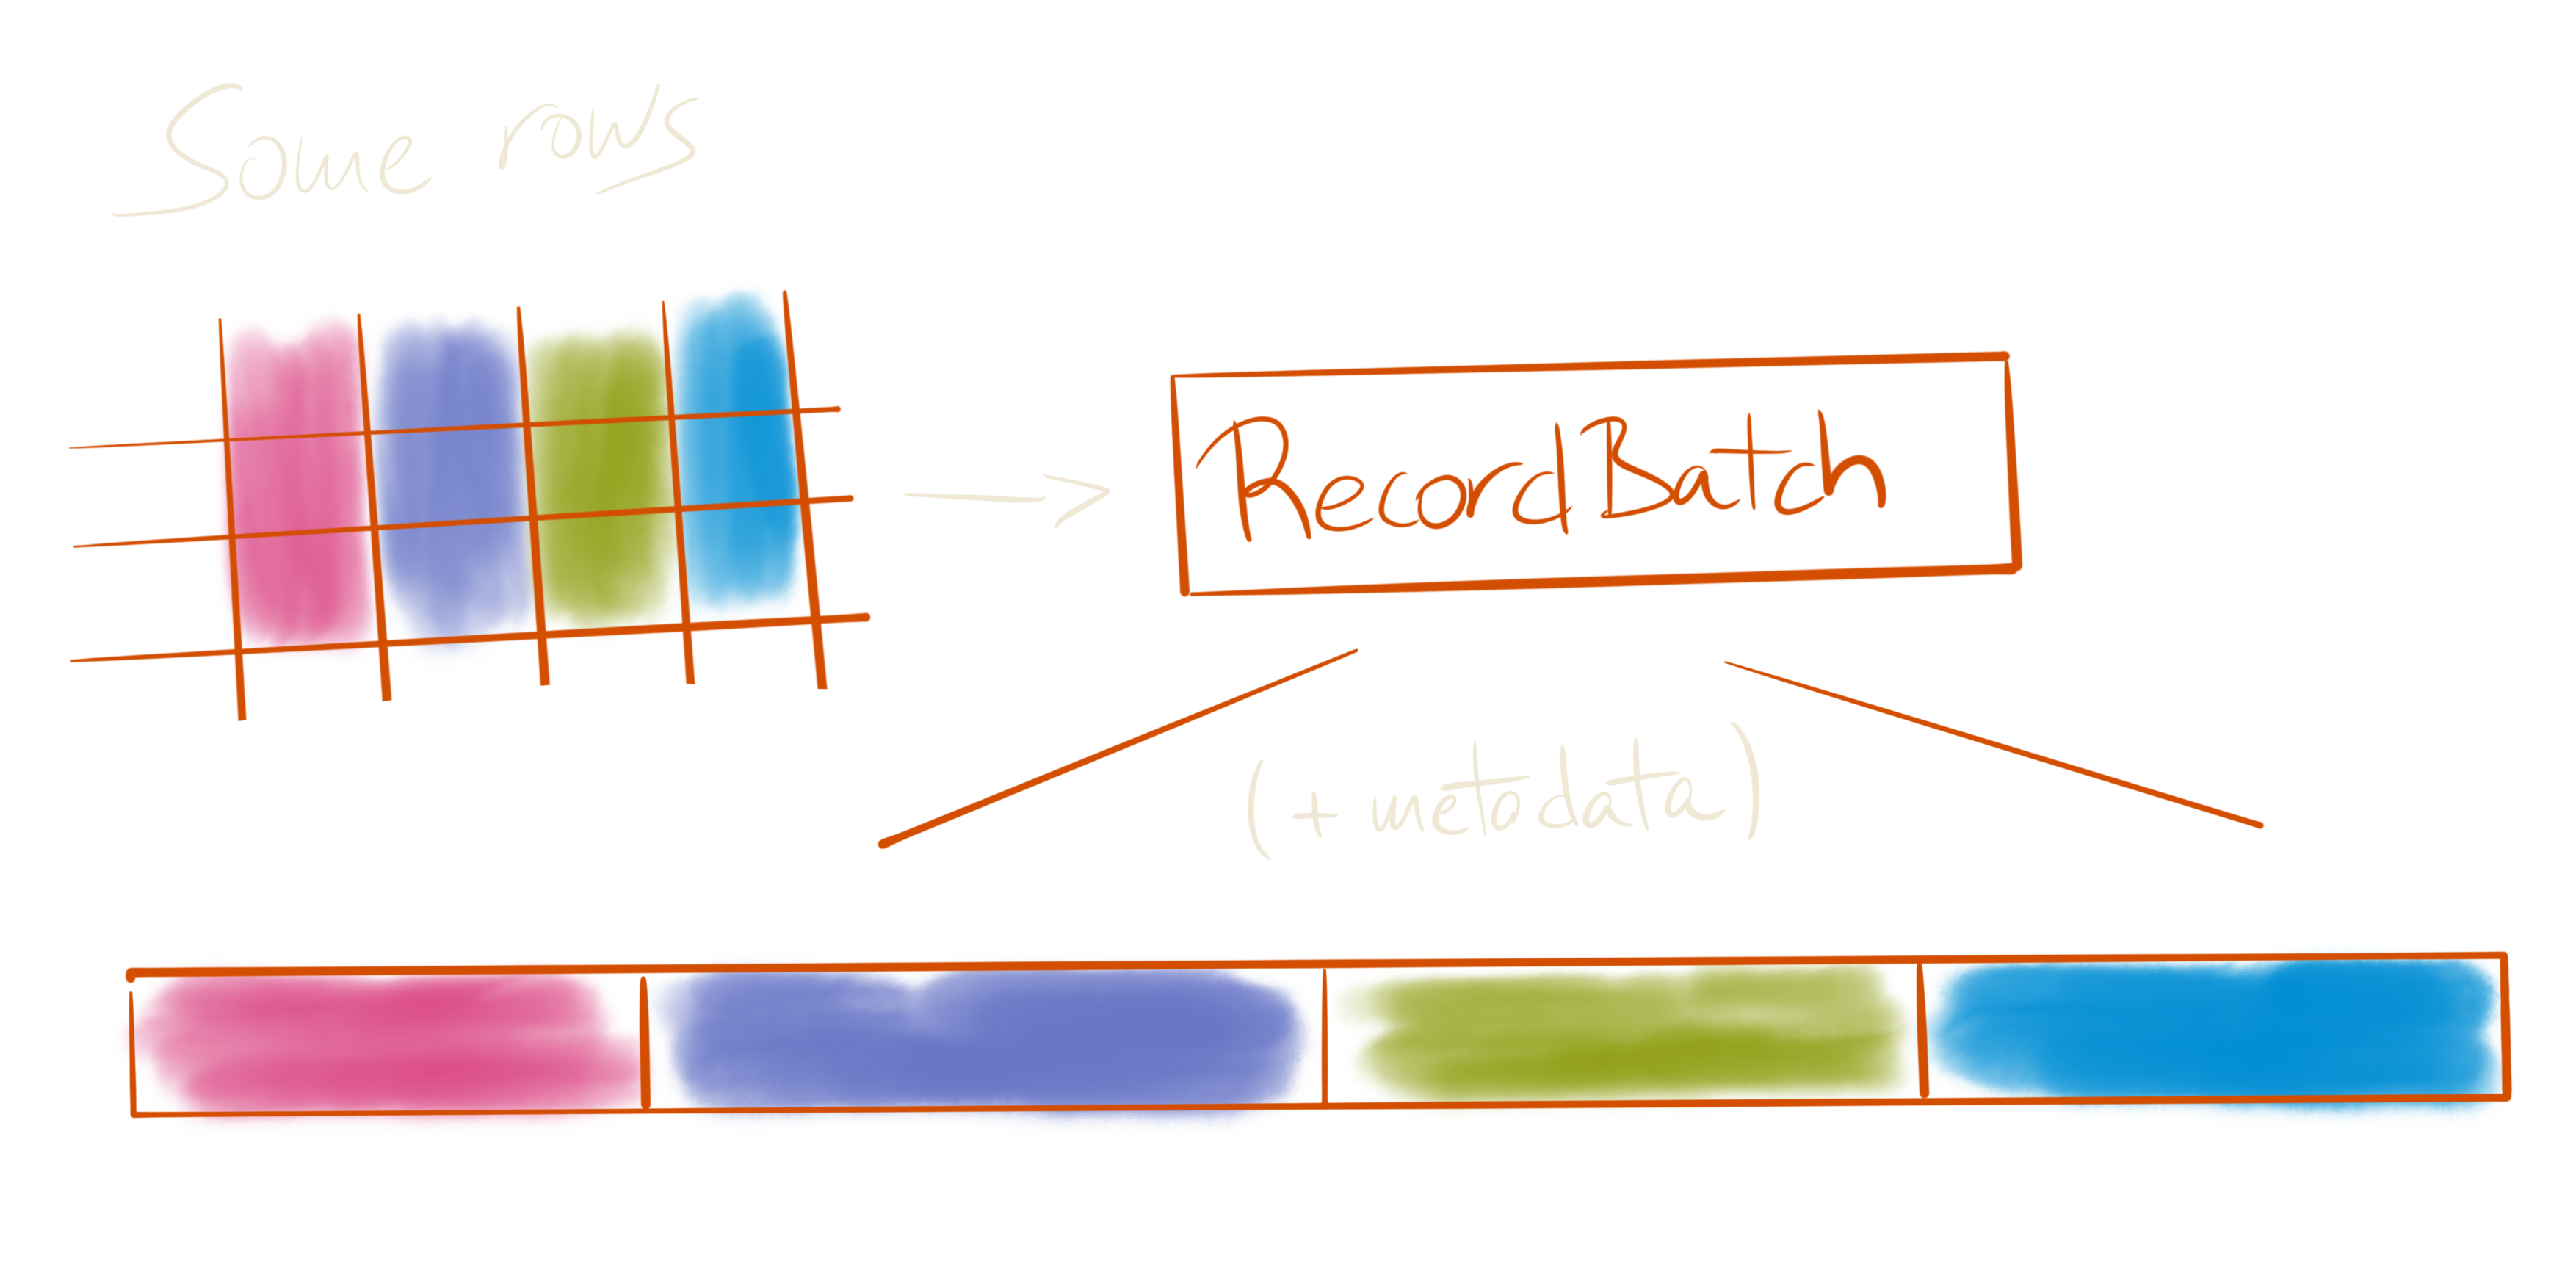 Some rows
RecordBatch
(+ metadata)